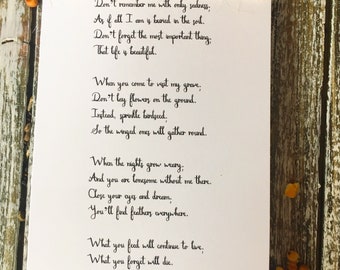 Don't remember me with only sadness,
As if all I am is buried in the soil.
Don't forget the most important thing;
That life is beautiful.
When you come to visit my grave,
Don't lay flowers on the ground.
Instead, sprinkle birdseed,
So the winged ones will gather round.
When the nights grow weary,
And you are lonesome without me there.
Close your eyes and dream,
You'll find feathers everywhere.
What you feed will continue to live,
What you forget will die.